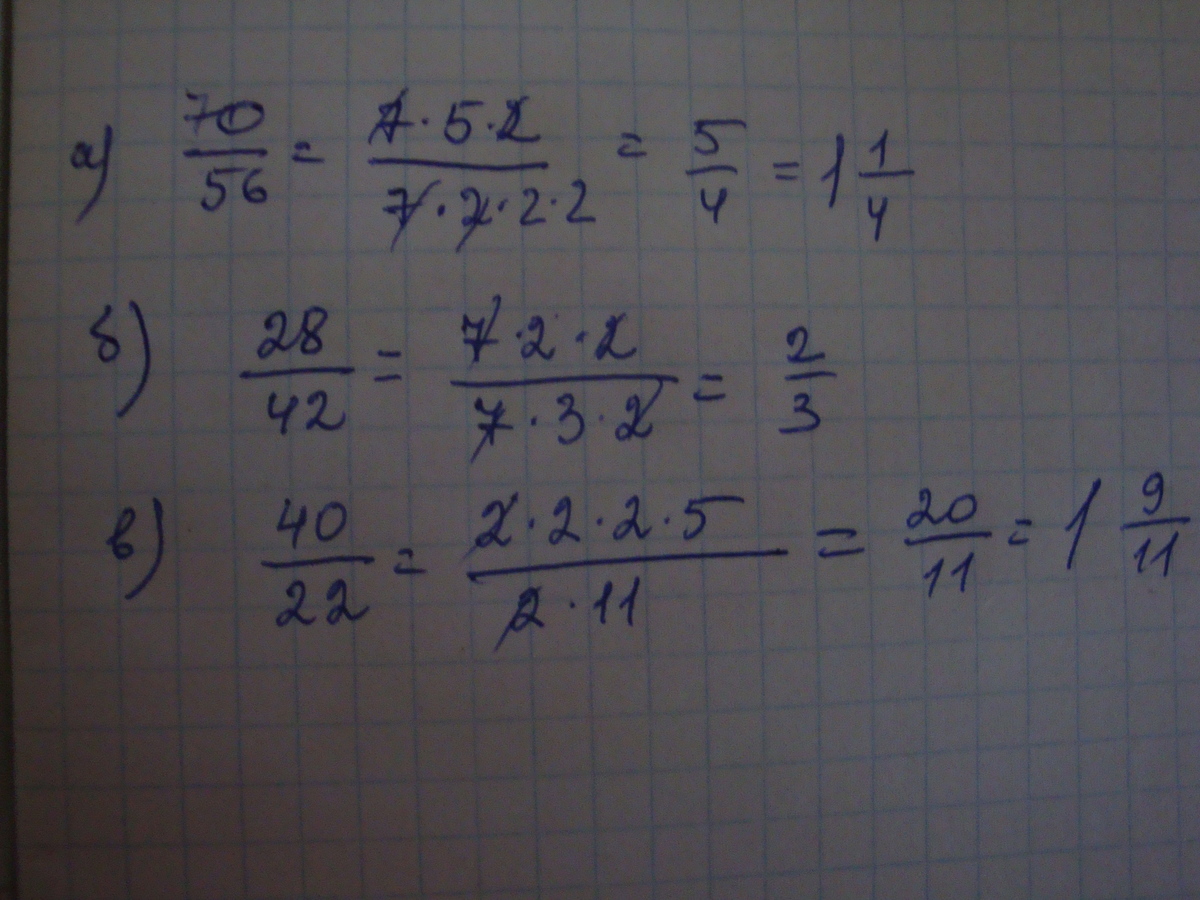 а) 70/56 = 7·5·2/7·2·2·2 = 5/4 = 1 1/4
б) 28/42 = 7·2·2/7·3·2 = 2/3
в) 40/22 = 2·2·2·5/2·11 = 20/11 = 1 9/11